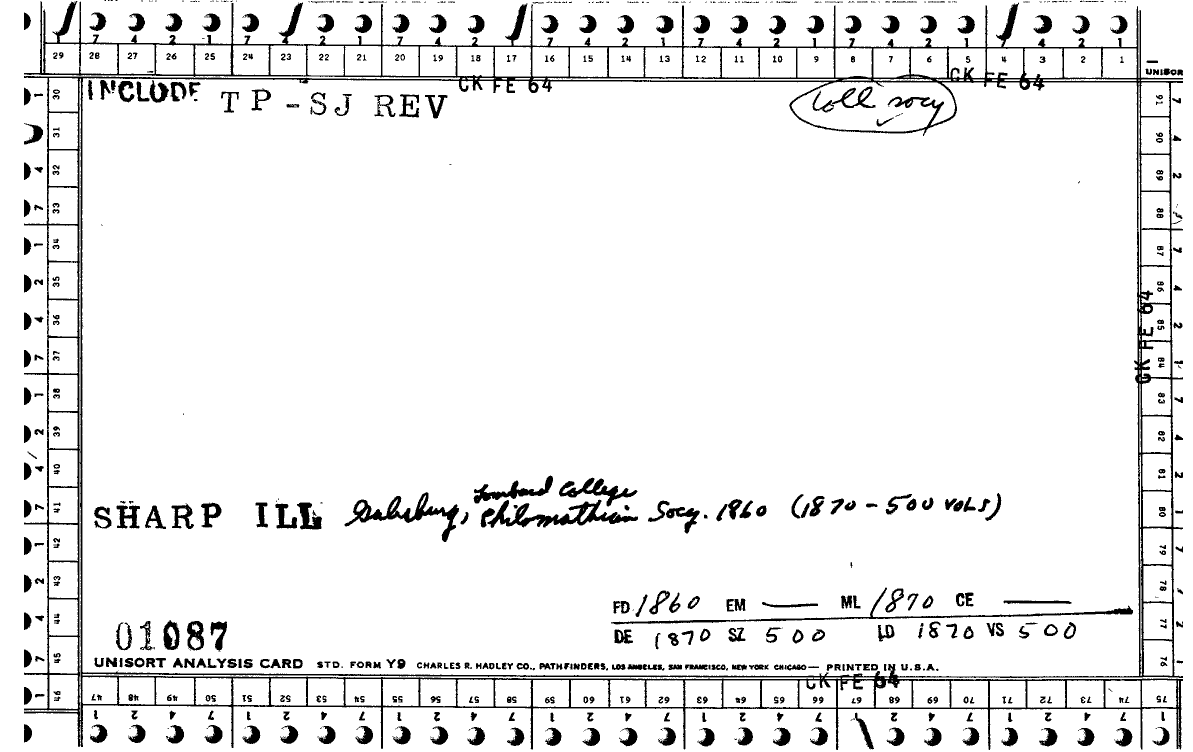 7 4 2 1 7 4 2 1 7 4 2 1 7 4 2 1 7 4 2 1 7 4 2 1 7 4 2 1
29 28 27 26 25 24 23 22 21 20 19 18 17 16 15 14 13 12 11 10 9 8 7 6 5 4 3 2 1
CK FE 64 CK FE 64 UNISOR
INCLUDE TP-SJ REV
Coll socy
30 31 32 33 34 35 36 37 38 39 40 41 42 43 44 45 46
91 90 89 88 87 86 85 84 83 82 81 80 79 78 77 76
CK FE 64
Lombard College
SHARP ILL Galesburg, Philomathian Socy. 1860 (1870 - 500 VOLS)
FD 1860 EM — ML 1870 CE —
01087 DE 1870 SZ 500 LD 1870 VS 500
UNISORT ANALYSIS CARD STD. FORM Y9 CHARLES R. HADLEY CO., PATHFINDERS, LOS ANGELES, SAN FRANCISCO, NEW YORK CHICAGO — PRINTED IN U.S.A.
CK FE 64
47 48 49 50 51 52 53 54 55 56 57 58 59 60 61 62 63 64 65 66 67 68 69 70 71 72 73 74 75
1 2 4 7 1 2 4 7 1 2 4 7 1 2 4 7 1 2 4 7 1 2 4 7 1 2 4 7 1